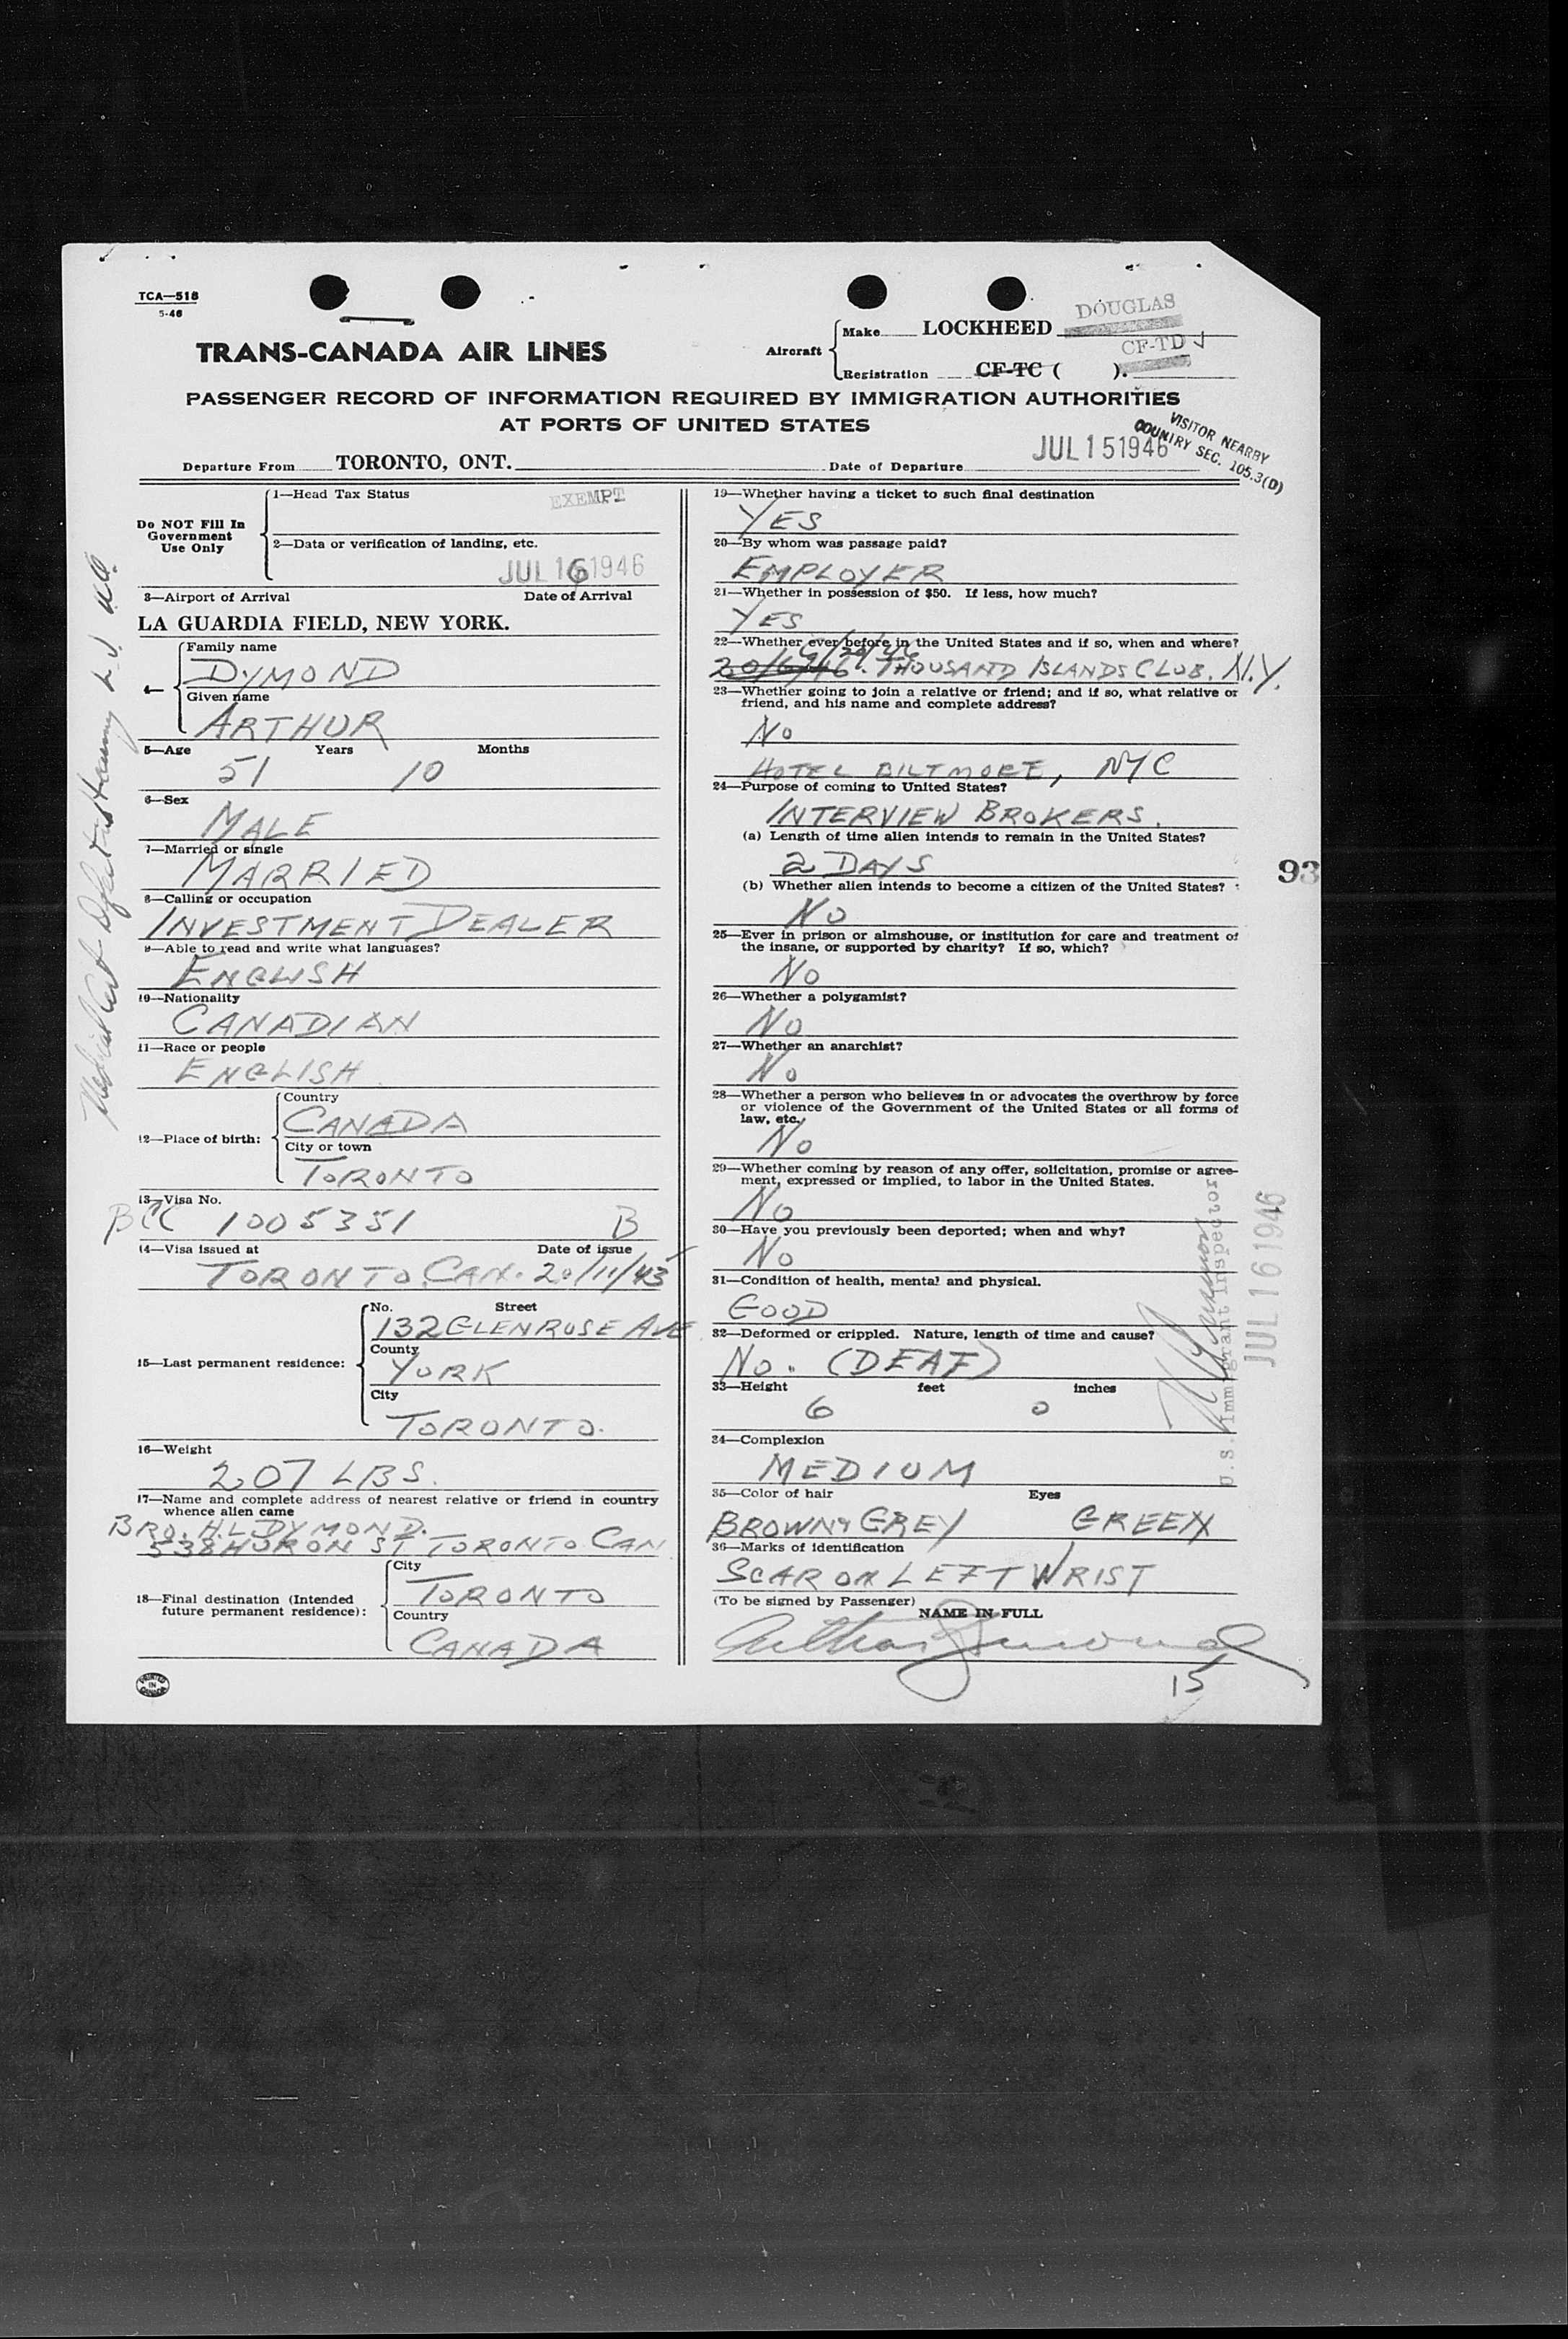 TCA—518
5-46
TRANS-CANADA AIR LINES
Aircraft
Make LOCKHEED DOUGLAS
Registration CF-TC ( ). CF-TD J
PASSENGER RECORD OF INFORMATION REQUIRED BY IMMIGRATION AUTHORITIES
AT PORTS OF UNITED STATES
VISITOR NEARBY
COUNTRY SEC. 105.3(D)
Departure From TORONTO, ONT. Date of Departure JUL 15 1946
Do NOT Fill In
Government
Use Only
1—Head Tax Status EXEMPT
2—Data or verification of landing, etc.
JUL 16 1946
3—Airport of Arrival Date of Arrival
LA GUARDIA FIELD, NEW YORK.
4—
Family name
DYMOND
Given name
ARTHUR
5—Age Years Months
51 10
6—Sex
MALE
7—Married or single
MARRIED
8—Calling or occupation
INVESTMENT DEALER
9—Able to read and write what languages?
ENGLISH
10—Nationality
CANADIAN
11—Race or people
ENGLISH
12—Place of birth:
Country
CANADA
City or town
TORONTO
13—Visa No.
BCC 1005351 B
14—Visa issued at Date of issue
TORONTO. CAN. 20/11/43
15—Last permanent residence:
No. Street
132 GLENROSE AVE
County
YORK
City
TORONTO.
16—Weight
207 LBS.
17—Name and complete address of nearest relative or friend in country
whence alien came
BRO. H.L DYMOND.
538 HURON ST TORONTO CAN
18—Final destination (Intended
future permanent residence):
City
TORONTO
Country
CANADA
PRINTED IN CANADA
19—Whether having a ticket to such final destination
YES
20—By whom was passage paid?
EMPLOYER
21—Whether in possession of $50. If less, how much?
YES
22—Whether ever before in the United States and if so, when and where?
6/20/46
20/6/46. THOUSAND ISLANDS CLUB. N.Y.
23—Whether going to join a relative or friend; and if so, what relative or
friend, and his name and complete address?
No
HOTEL BILTMORE, NYC
24—Purpose of coming to United States?
INTERVIEW BROKERS.
(a) Length of time alien intends to remain in the United States?
2 DAYS
93
(b) Whether alien intends to become a citizen of the United States?
No
25—Ever in prison or almshouse, or institution for care and treatment of
the insane, or supported by charity? If so, which?
No
26—Whether a polygamist?
No
27—Whether an anarchist?
No
28—Whether a person who believes in or advocates the overthrow by force
or violence of the Government of the United States or all forms of
law, etc.
No
29—Whether coming by reason of any offer, solicitation, promise or agree-
ment, expressed or implied, to labor in the United States.
No
30—Have you previously been deported; when and why?
No
31—Condition of health, mental and physical.
GOOD
32—Deformed or crippled. Nature, length of time and cause?
No. (DEAF)
33—Height feet inches
6 0
34—Complexion
MEDIUM
35—Color of hair Eyes
BROWN & GREY GREEN
36—Marks of identification
SCAR ON LEFT WRIST
(To be signed by Passenger)
NAME IN FULL
Arthur Dymond
15
U.S. Immigrant Inspector
JUL 16 1946